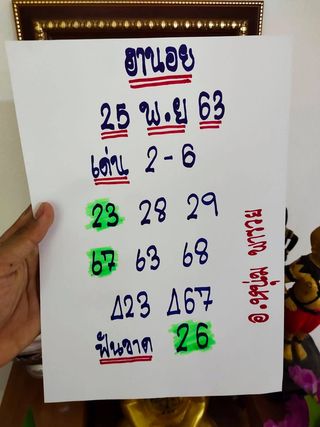 ฮานอย
25 พ.ย 63
เด่น 2-6
23 28 29
67 63 68
Δ23 Δ67
ฟันขาด 26
อ.หนุ่ม พารวย